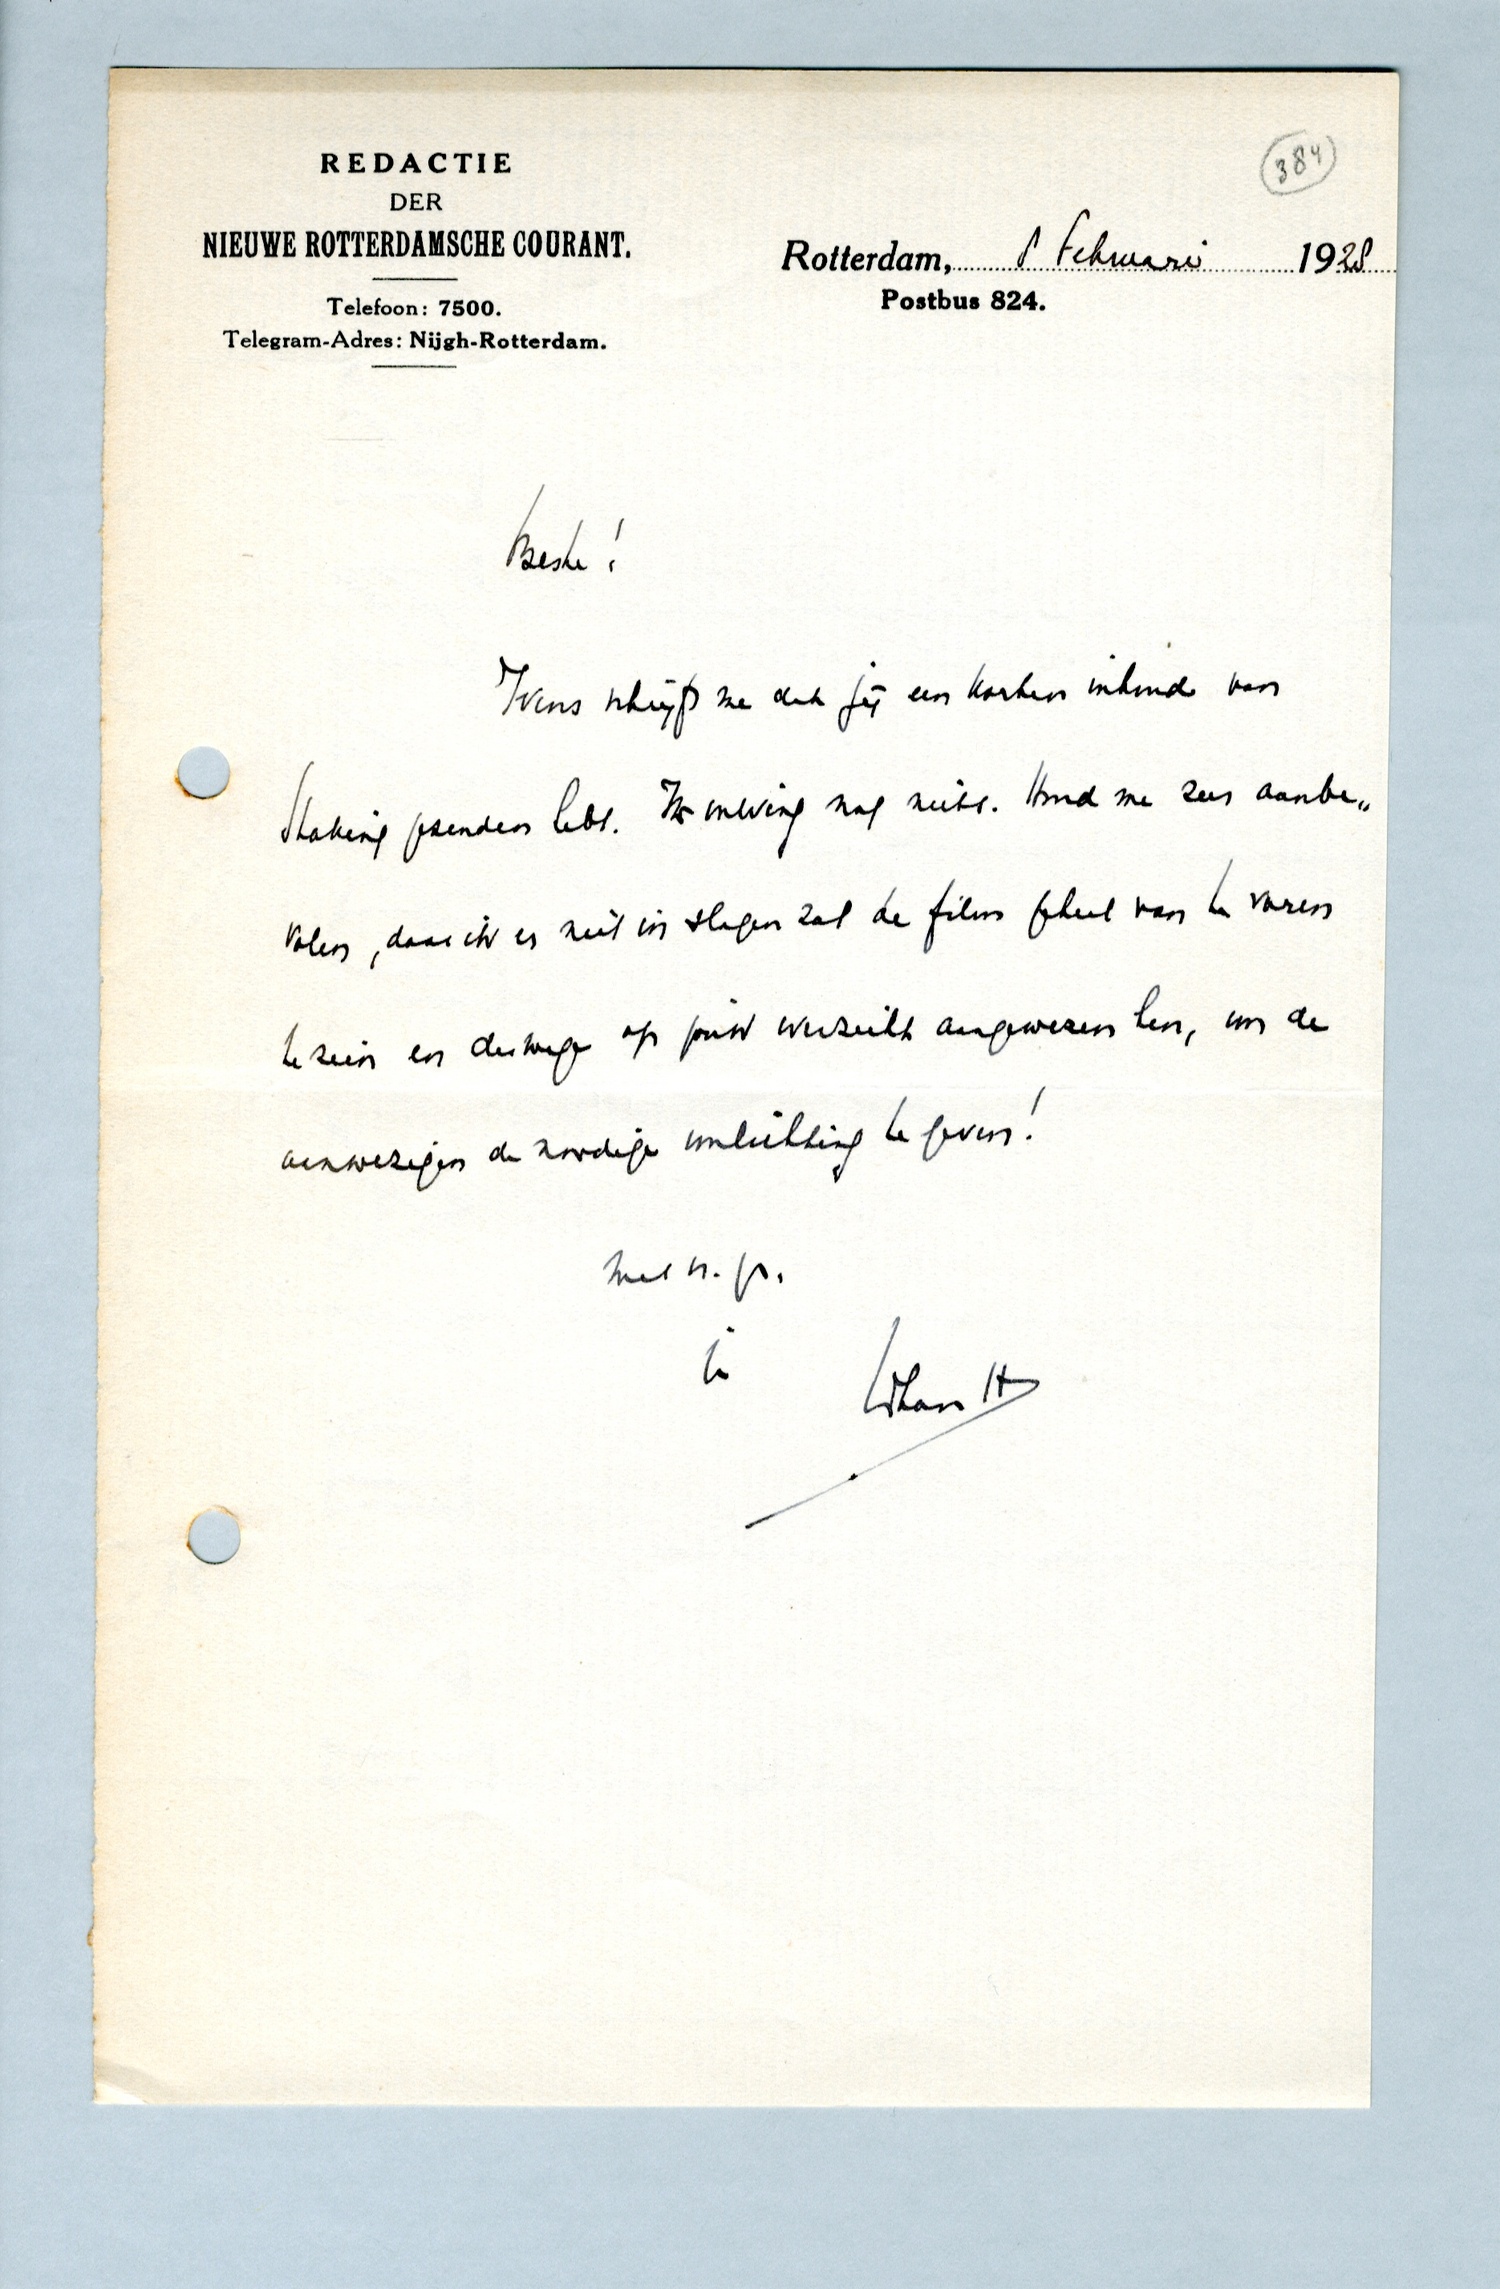 384
REDACTIE
DER
NIEUWE ROTTERDAMSCHE COURANT.
Telefoon: 7500.
Telegram-Adres: Nijgh-Rotterdam.
Rotterdam, 8 Februari 1928
Postbus 824.
Beste!
Ivens schrijft me dat jij een korten inhoud van
Staking gezonden hebt. Ik ontving nog niets. Houd me zeer aanbe„
volen, daar ik er niet in slagen zal de film geheel van te voren
te zien en derhalve op jouw overzicht aangewezen ben, om de
aanwezigen de noodige inlichting te geven!
met v. gr.
Johan H